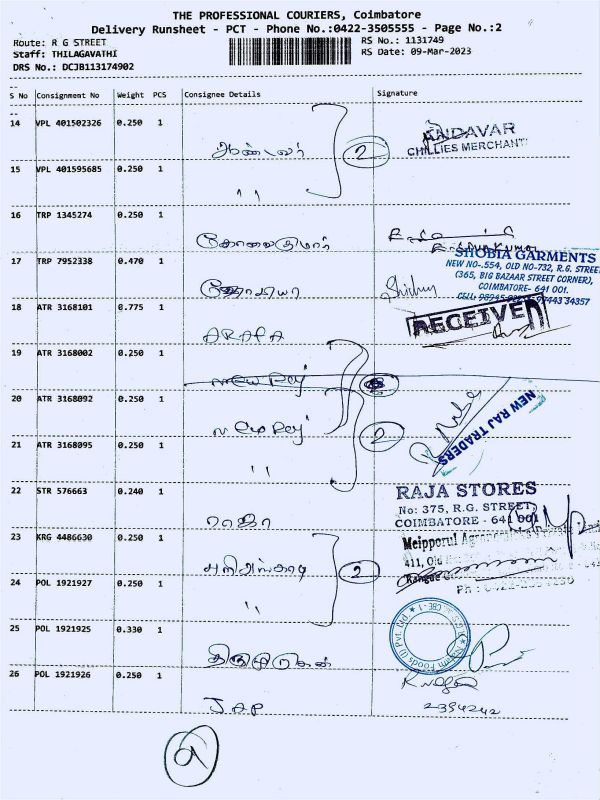 THE PROFESSIONAL COURIERS, Coimbatore
Delivery Runsheet - PCT - Phone No.:0422-3505555 - Page No.:2
Route: R G STREET
RS No.: 1131749
Staff: THILAGAVATHI
RS Date: 09-Mar-2023
DRS No.: DCJB113174902
S No Consignment No Weight PCS Consignee Details Signature
14 VPL 401502326 0.250 1
ஆண்டவர்
2
ANDAVAR
CHILLIES MERCHANT
15 VPL 401595685 0.250 1
,,
16 TRP 1345274 0.250 1
17 TRP 7952338 0.470 1
SHOBIA GARMENTS
NEW NO-.554, OLD NO-732, R.G. STREET
(365, BIG BAZAAR STREET CORNER),
COIMBATORE- 641 001.
18 ATR 3168101 0.775 1
RECEIVED
19 ATR 3168002 0.250 1
new Raj
20 ATR 3168092 0.250 1
new Raj
2
NEW RAJ TRADERS
21 ATR 3168095 0.250 1
,,
22 STR 576663 0.240 1
ராஜா
RAJA STORES
No: 375, R.G. STREET,
COIMBATORE - 641 001
23 KRG 4486630 0.250 1
2
Meipporul
411, Old
24 POL 1921927 0.250 1
,,
25 POL 1921925 0.330 1
திருமுருகன்
26 POL 1921926 0.250 1
JAP
2394242
9